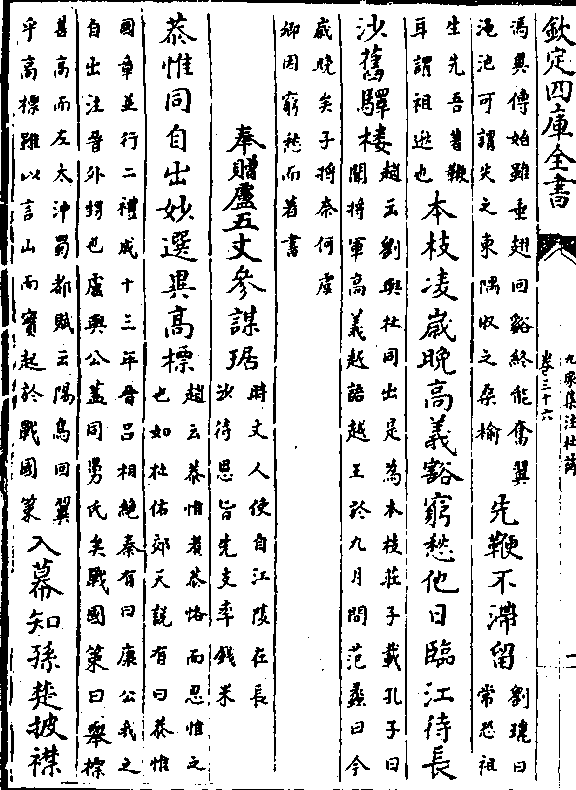 欽定四庫全書
九家集注杜詩
卷三十六
馮異傳始雖垂翅回谿終能奮翼
澠池可謂失之東隅収之桑榆
先鞭不滯留
劉琨曰
常恐祖
生先吾著鞭
耳謂祖逖也
本枝凌嵗晩高義豁窮愁他日臨江待長
沙舊驛樓
趙云劉與杜同出是為本枝莊子載孔子曰
闌將軍高義越語越王於九月問范蠡曰今
嵗晩矣子將奈何虞
卿因窮愁而著書
奉贈盧五丈參謀琚
時丈人使自江陵在長
沙待恩旨先支率錢米
恭惟同自出妙選異高標
趙云恭惟者恭恪而思惟之
也如杜佑郊天説有曰恭惟
國章並行二禮成十三年晉吕相絶秦有曰康公我之
自出注晉外甥也盧與公蓋同舅氏矣戰國策曰舉標
甚高而左太沖蜀都賦云陽烏回翼
乎高標雖以言山而實起於戰國策
入幕知孫楚披襟